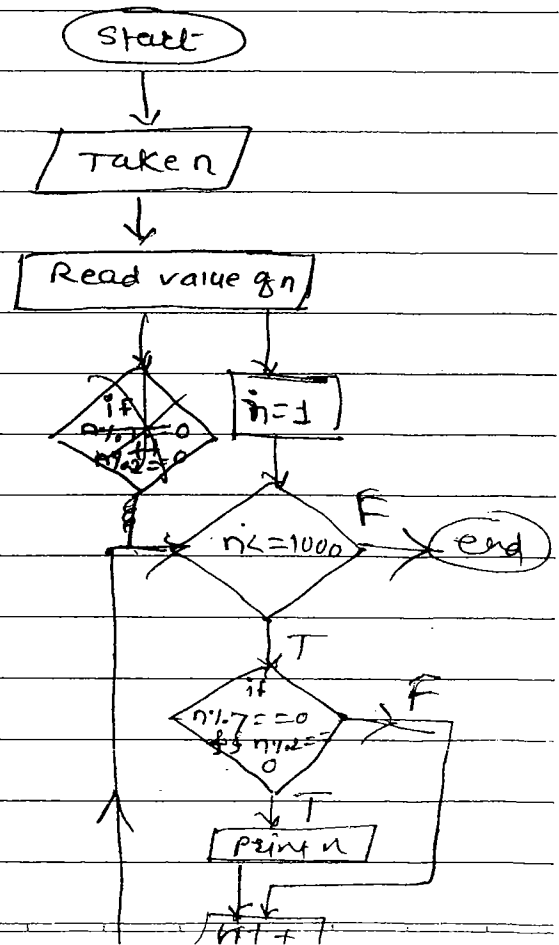 Start
Take n
Read value of n
if
n%7==0
n%2==0
n=1
n<=1000
F
end
T
if
n%7==0
&& n%2==
0
F
T
Print n
n++